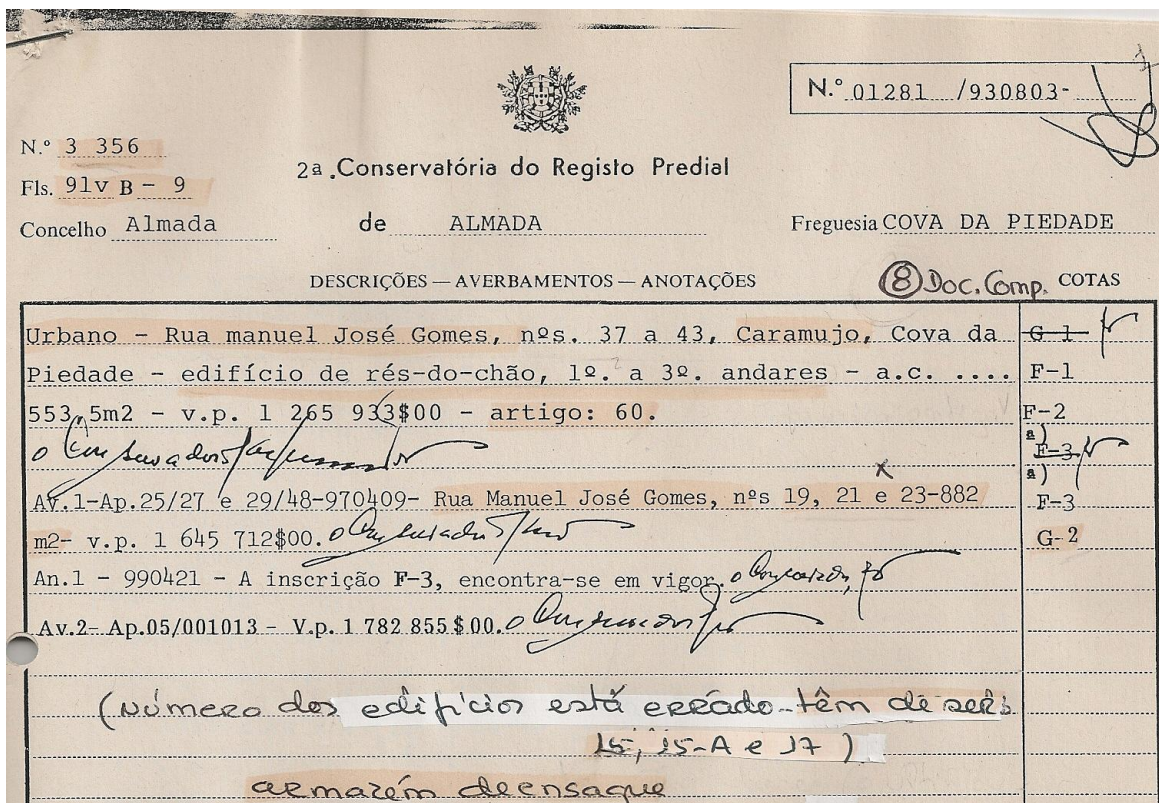 N.º 01281 /930803-
N.º 3 356
Fls. 91v B - 9
2ª. Conservatória do Registo Predial
Concelho Almada
de ALMADA
Freguesia COVA DA PIEDADE
DESCRIÇÕES — AVERBAMENTOS — ANOTAÇÕES
8 Doc. Comp. COTAS
Urbano - Rua manuel José Gomes, nºs. 37 a 43, Caramujo, Cova da G-1
Piedade - edifício de rés-do-chão, 1º. a 3º. andares - a.c. .... F-1
553,5m2 - v.p. 1 265 933$00 - artigo: 60. F-2
a)
o Conservador F-3
a)
Av.1-Ap.25/27 e 29/48-970409- Rua Manuel José Gomes, nºs 19, 21 e 23-882 F-3
m2- v.p. 1 645 712$00. o Conservador G-2
An.1 - 990421 - A inscrição F-3, encontra-se em vigor. o Conservador
Av.2- Ap.05/001013 - V.p. 1 782 855$00. o Conservador
(Número dos edifícios está errádo - têm de ser:
15, 15-A e 17)
armazém de ensaque